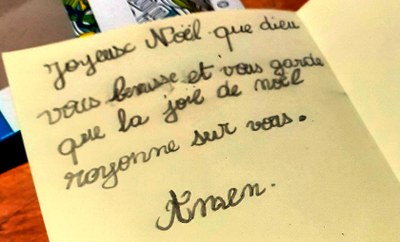 Joyeuse Noël que dieu
vous benisse et vous garde
que la joie de noël
rayonne sur vous.